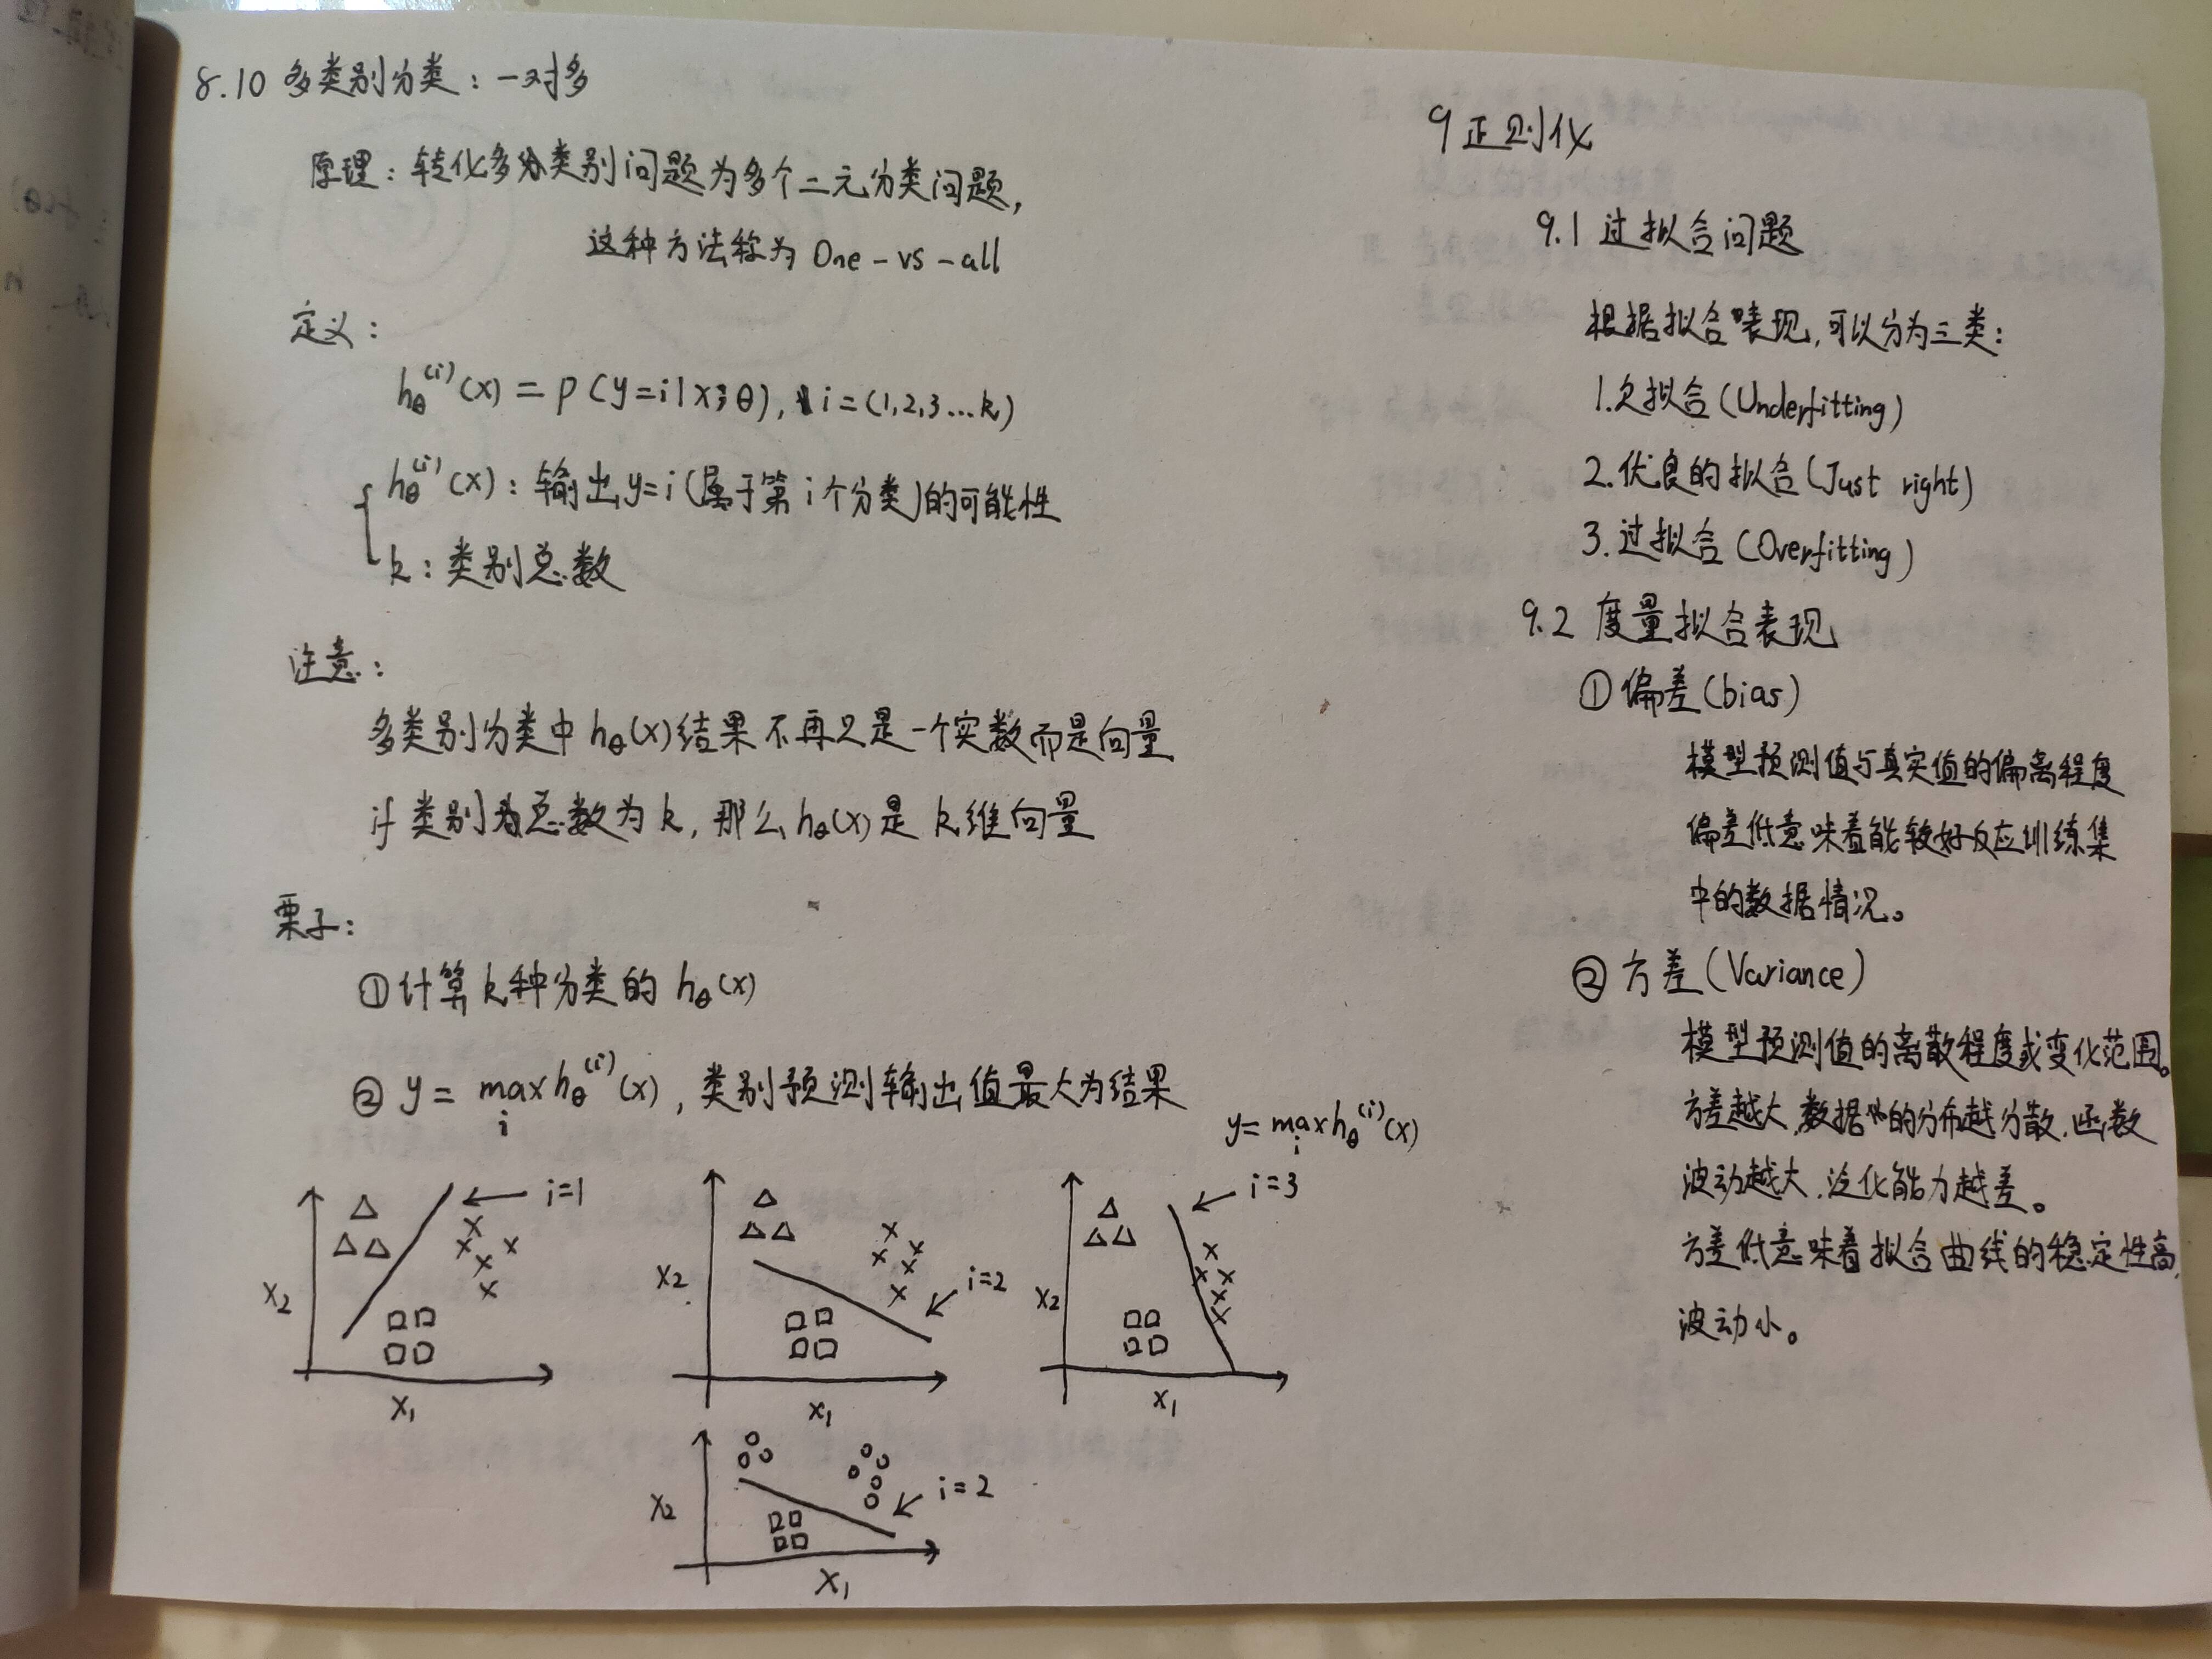 8.10 多类别分类：一对多
原理：转化多分类别问题为多个二元分类问题，
这种方法称为 One-vs-all
定义：
hθ⁽ⁱ⁾(x) = p(y=i|x;θ), i=(1,2,3...k)
hθ⁽ⁱ⁾(x)：输出y=i(属于第i个分类)的可能性
k：类别总数
注意：
多类别分类中hθ(x)结果不再只是一个实数而是向量
if 类别总数为k, 那么hθ(x)是k维向量
栗子：
①计算k种分类的 hθ(x)
② y = max hθ⁽ⁱ⁾(x)，类别预测输出值最大为结果
i
y= max hθ⁽ⁱ⁾(x)
i
i=1
x₂
x₁
i=2
x₂
x₁
i=3
x₂
x₁
i=2
x₂
x₁
9 正则化
9.1 过拟合问题
根据拟合表现,可以分为三类：
1.欠拟合(Underfitting)
2.优良的拟合(Just right)
3.过拟合(Overfitting)
9.2 度量拟合表现
①偏差(bias)
模型预测值与真实值的偏离程度
偏差低意味着能较好反应训练集
中的数据情况。
②方差(Variance)
模型预测值的离散程度或变化范围。
方差越大,数据的分布越分散,函数
波动越大,泛化能力越差。
方差低意味着拟合曲线的稳定性高,
波动小。